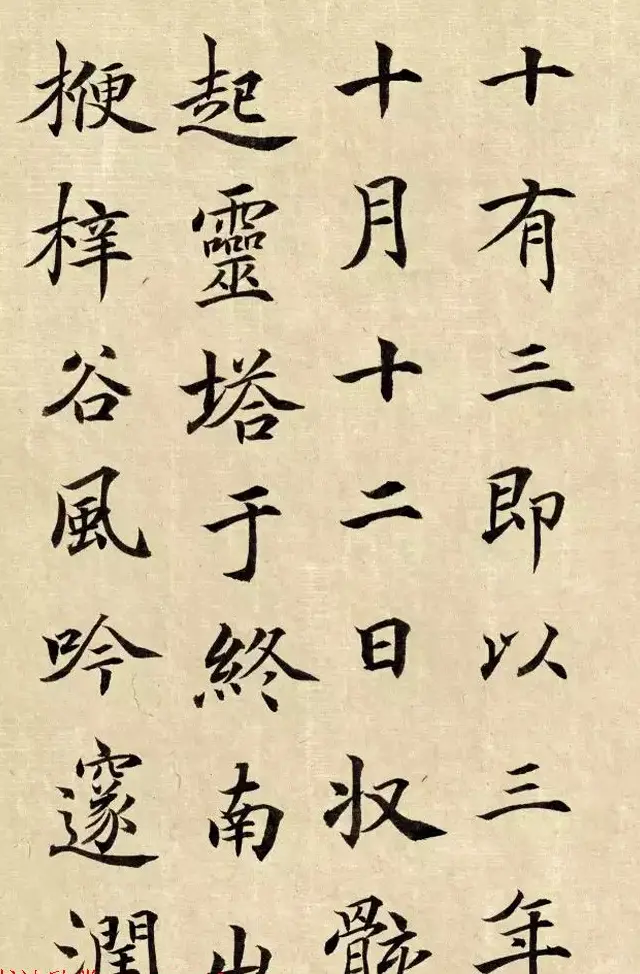 十有三即以三年
十月十二日収骸
起靈塔于終南山
楩梓谷風吟邃澗